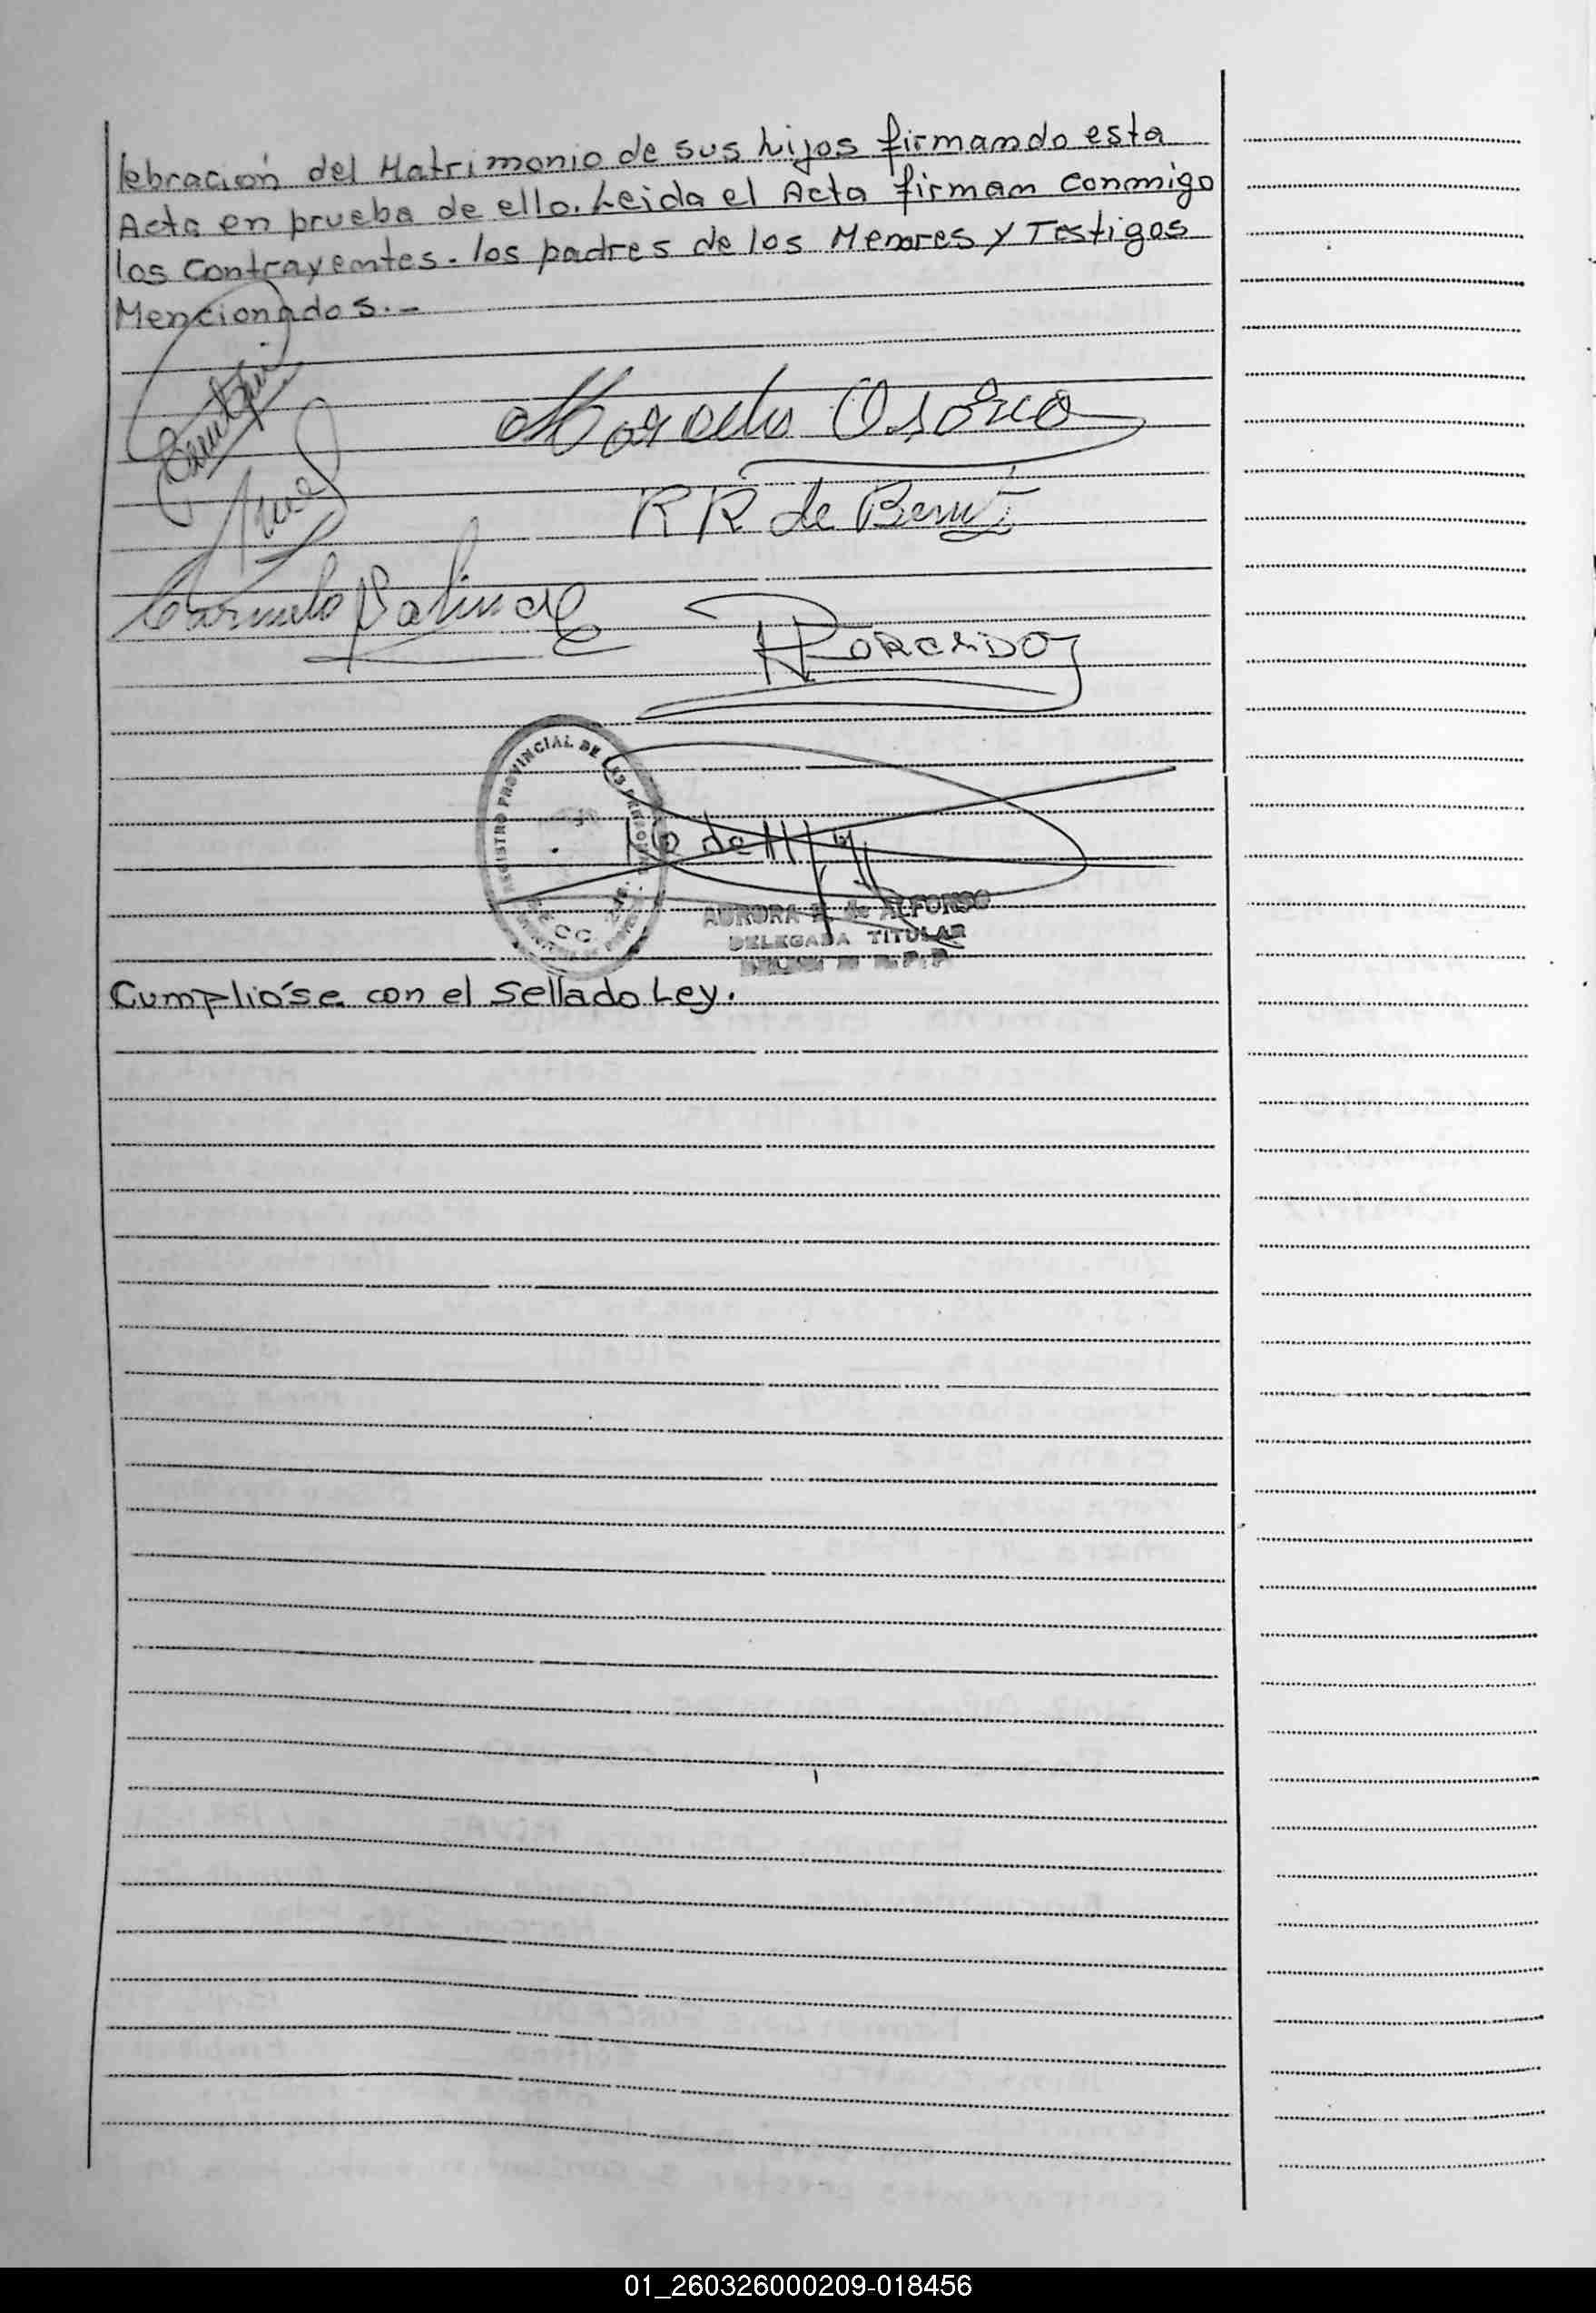 lebración del Matrimonio de sus hijos firmando esta
Acta en prueba de ello. Leida el Acta firman conmigo
los Contrayentes. los padres de los Menores y Testigos
Mencionados.-
Marcelo Osorio
RR de
Carmelo
REGISTRO PROVINCIAL DE LAS PERSONAS
AURORA de ALFONSO
DELEGADA TITULAR
Cumplióse con el Sellado Ley.
01_260326000209-018456